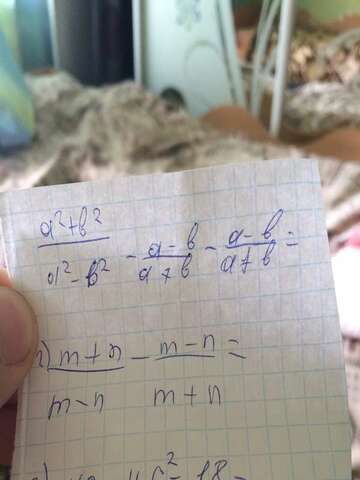 a²+b²
a²-b² - a-b - a-b =
a+b a+b
m+n - m-n =
m-n m+n